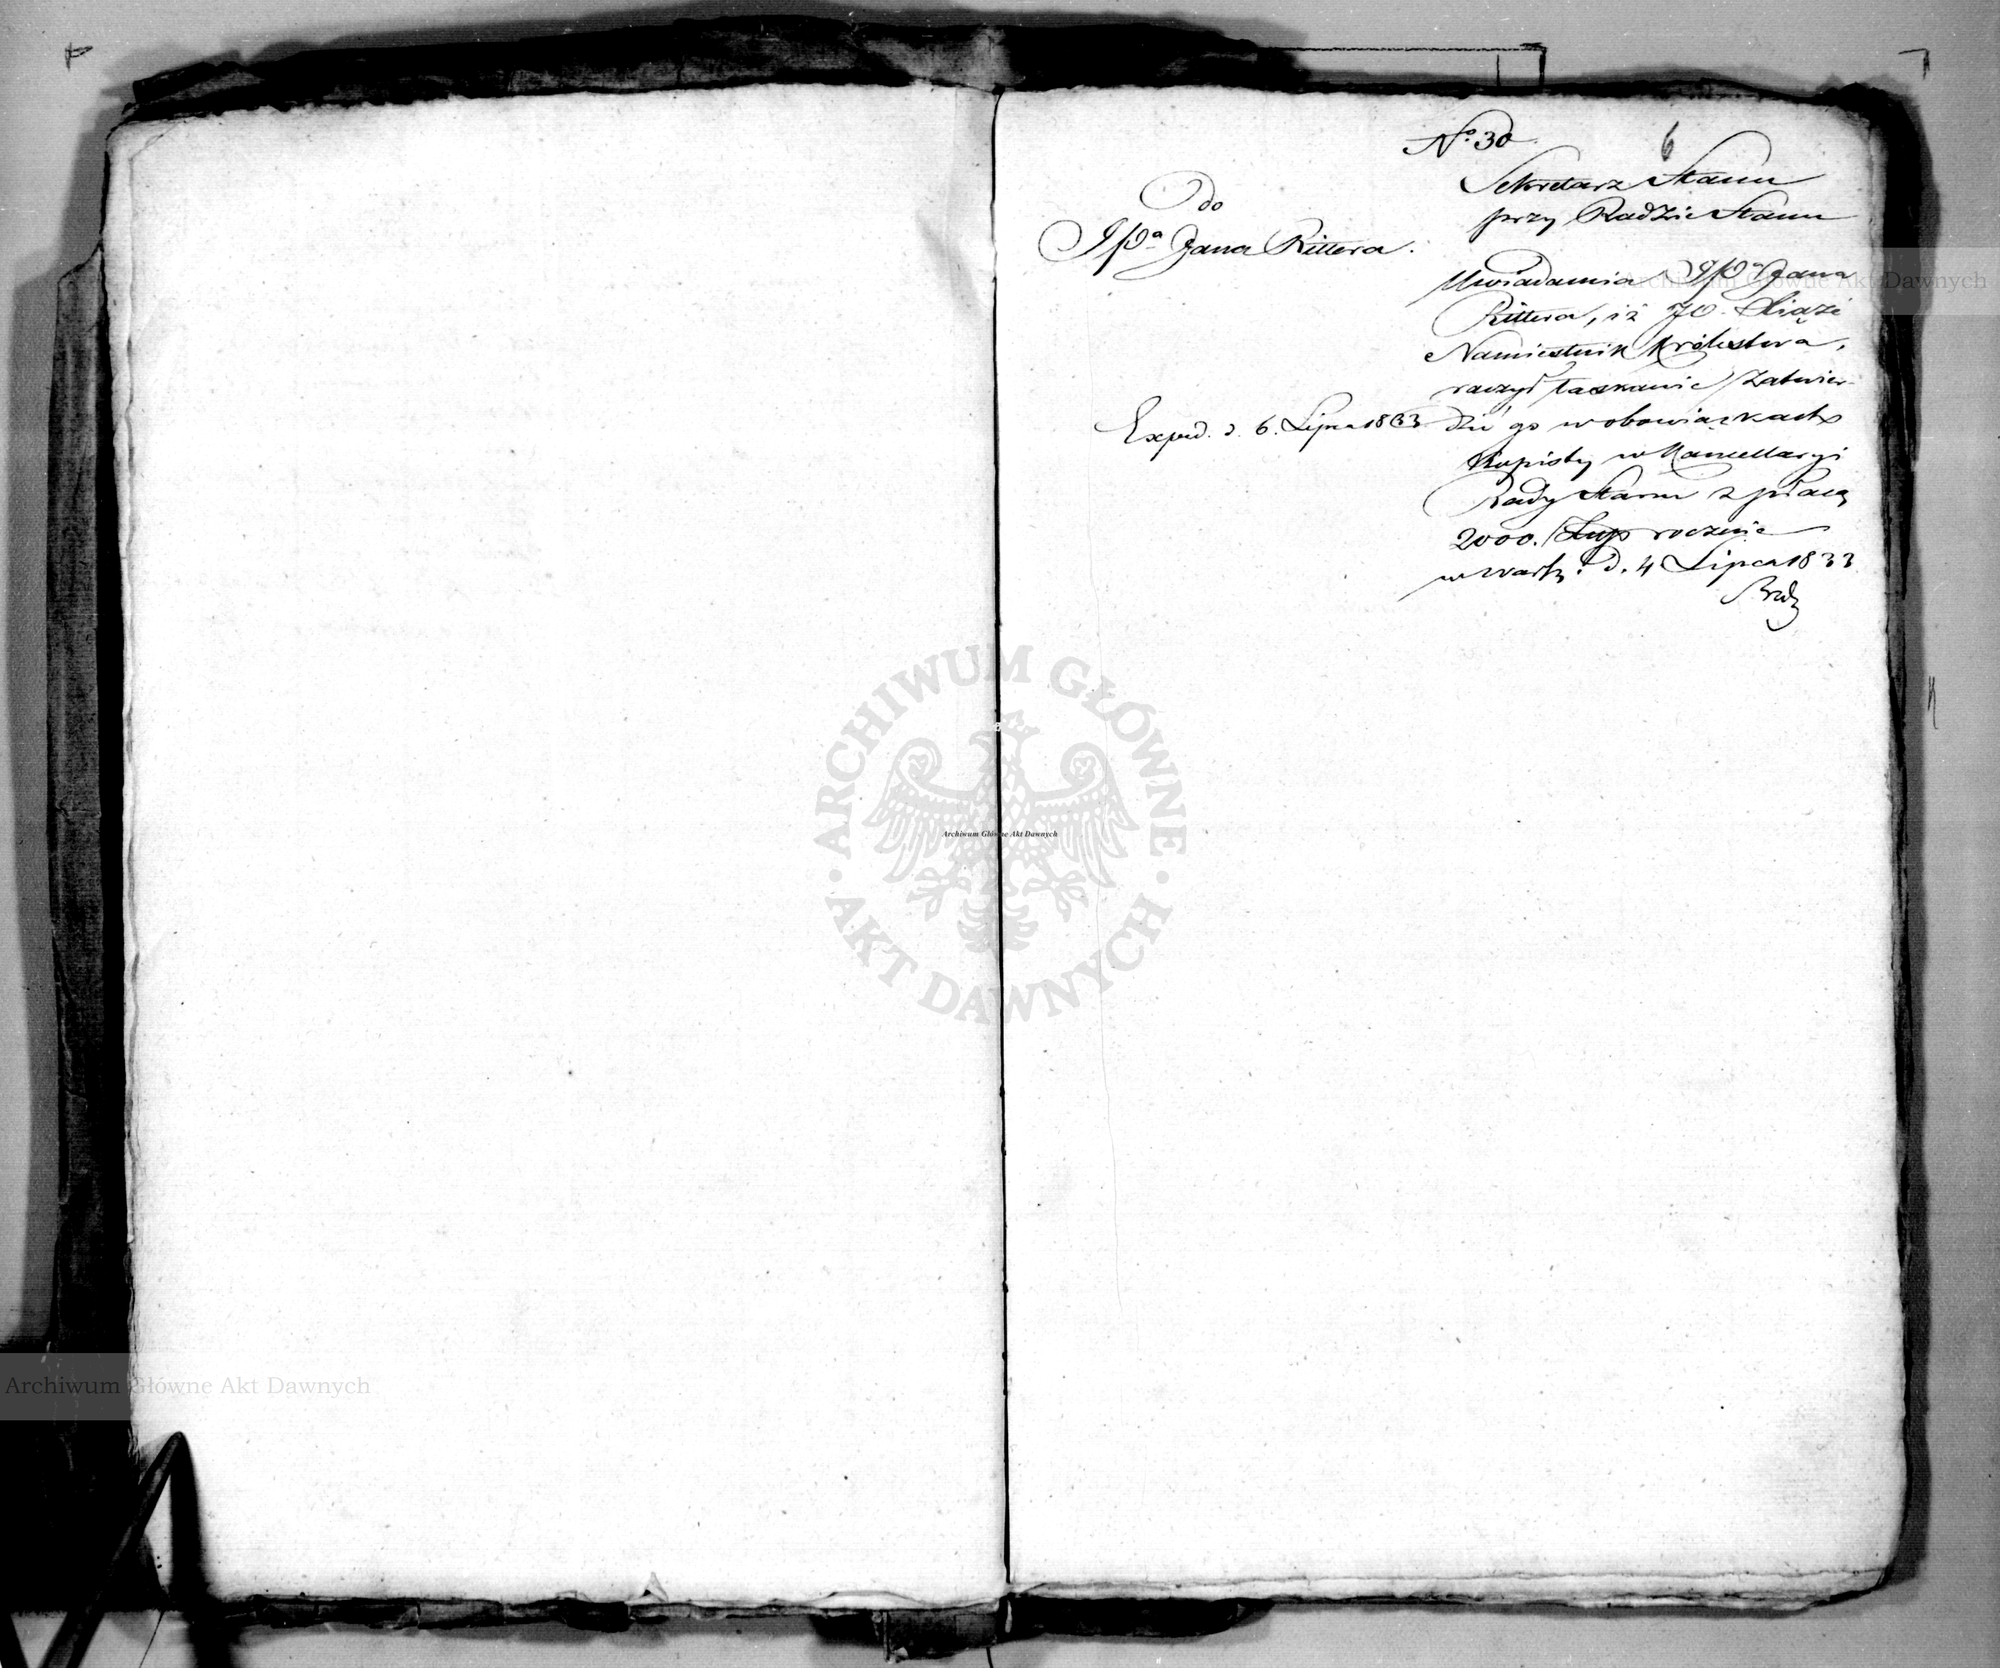 Nº 30
6
Sekretarz Stanu
przy Radzie Stanu
do
JPª Jana Rittera.
Uwiadamia JPª Jana
Rittera, iż JO. Xiąże
Namiestnik Królestwa,
raczył łaskawie zatwier-
dzić go w obowiązkach
Kopisty w Kancellaryi
Rady Stanu z płacą
2000. Złtp rocznie
w Warsz. d. 4 Lipca 1833
Exped. d. 6. Lipca 1833
Archiwum Główne Akt Dawnych
ARCHIWUM GŁÓWNE
AKT DAWNYCH
Archiwum Główne Akt Dawnych
Archiwum Główne Akt Dawnych